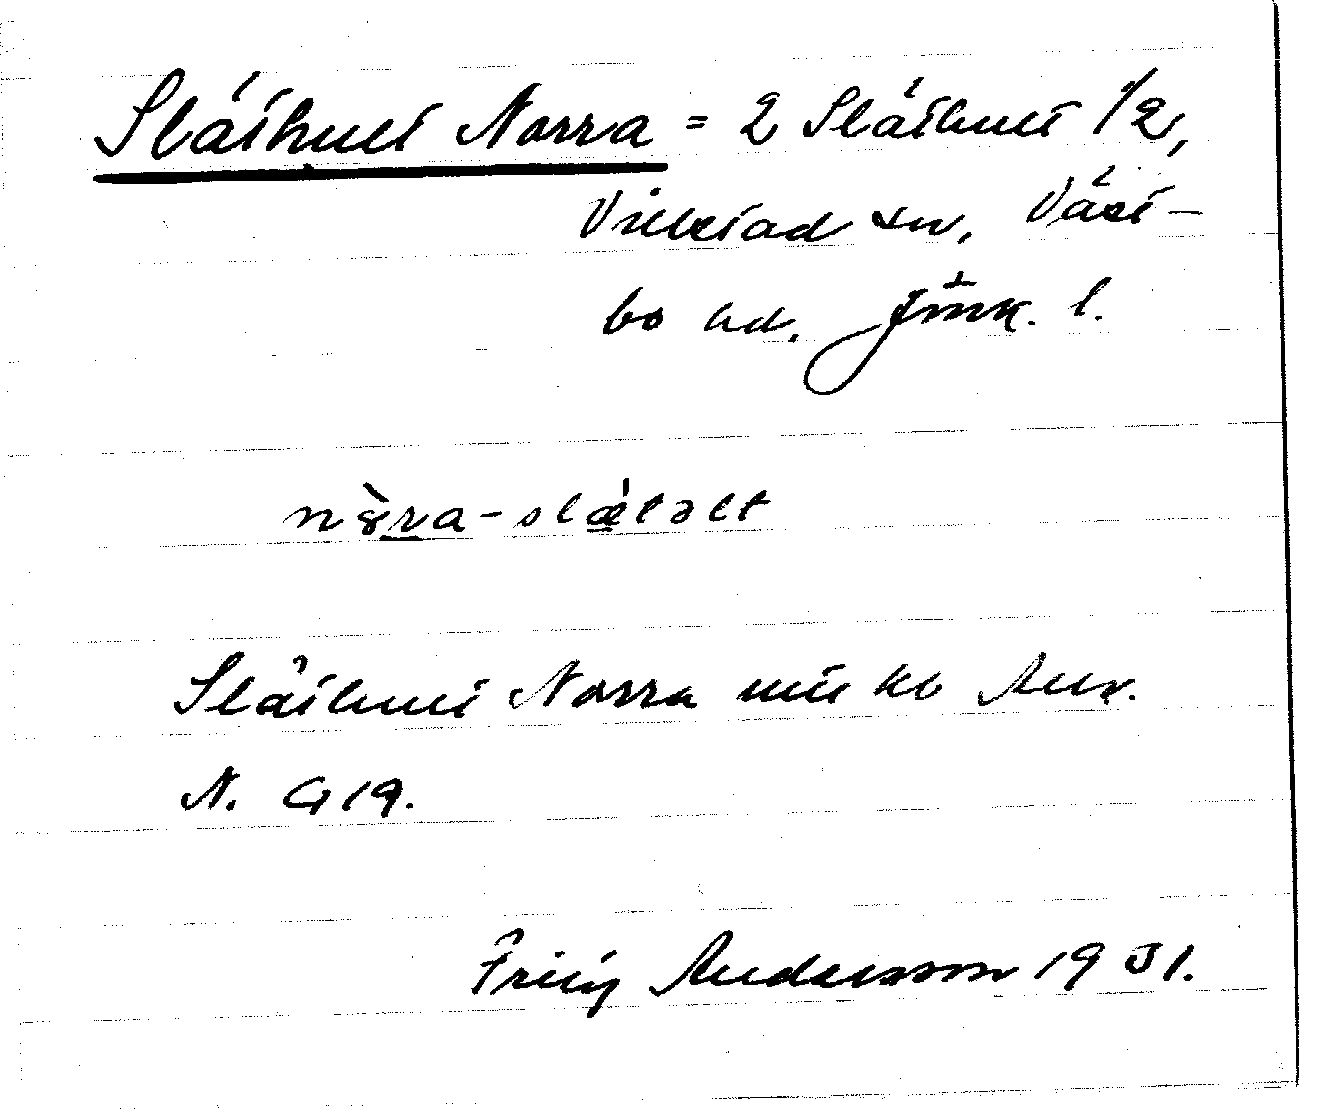 Släthult Norra = 2 Släthult 1/2,
Villstad sn, Väst-
bo hd. Jönk. l.
nòra-slǽtəlt
Släthult Norra mtl kb Anv.
N. G 19.
Fritz Andersson 1931.